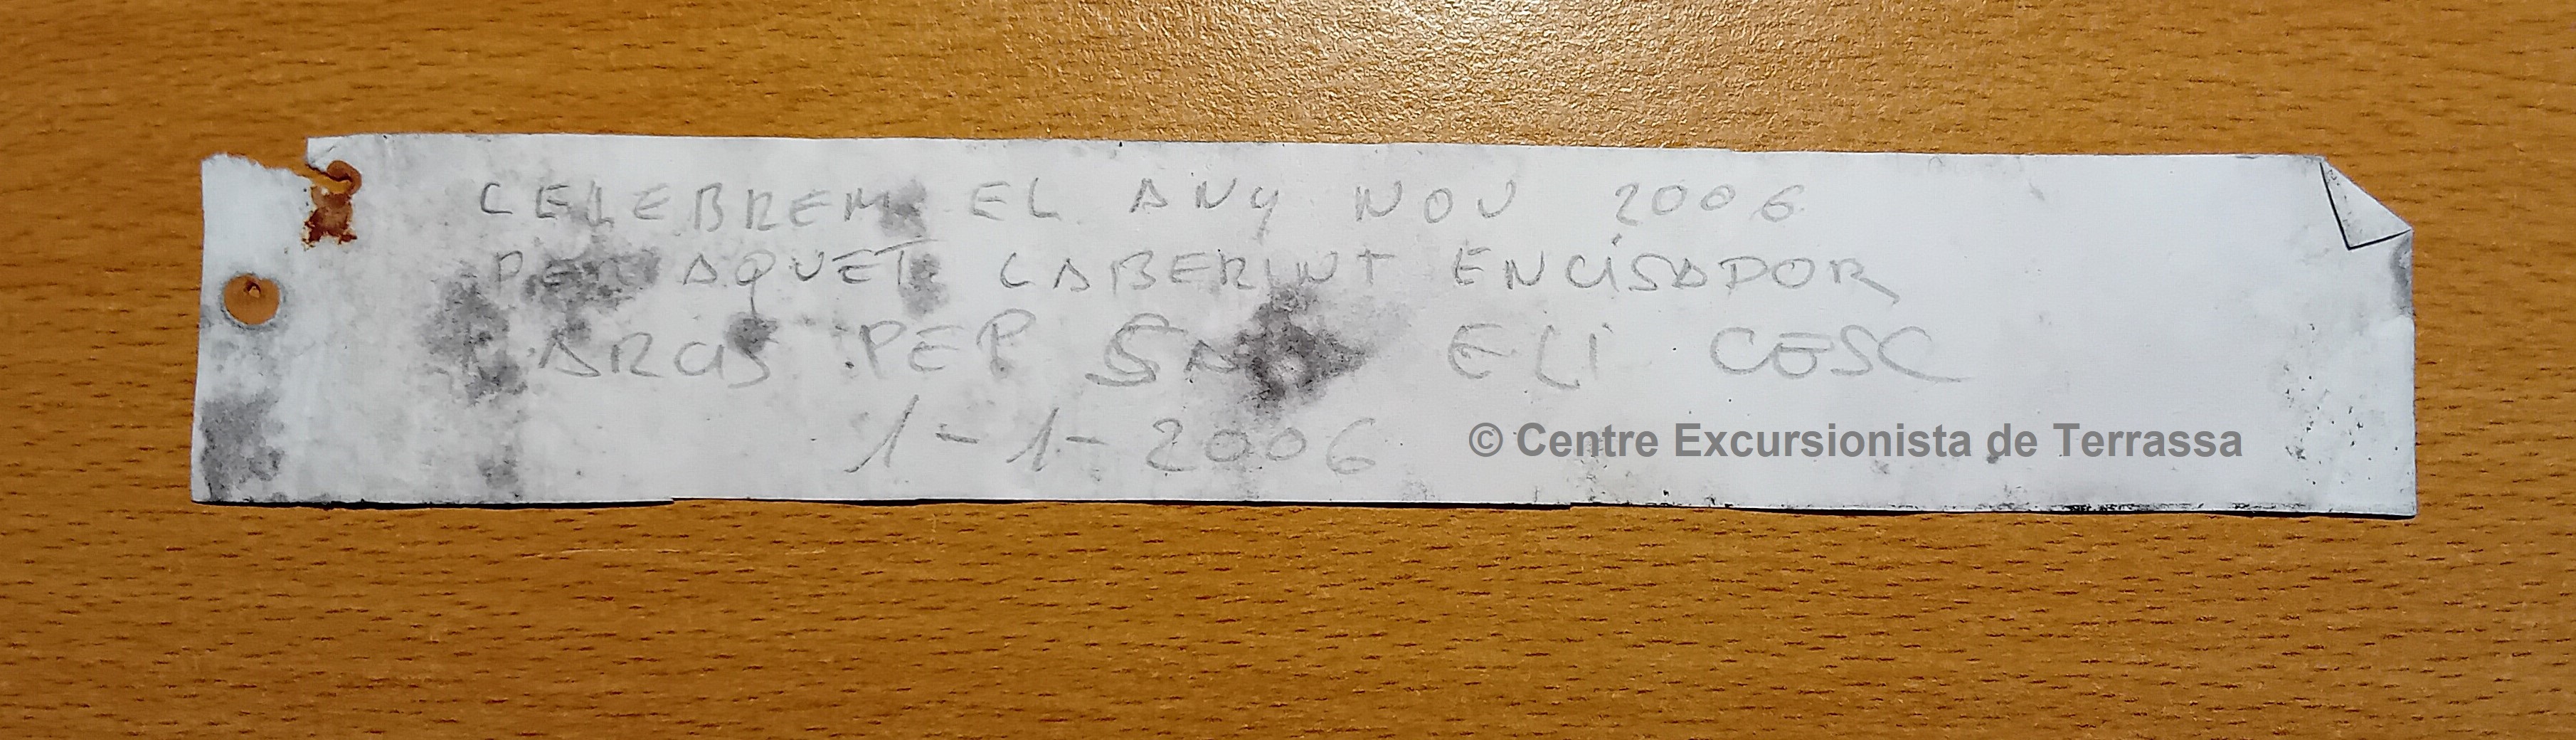 CELEBREM EL ANY NOU 2006
PER AQUET LABERINT ENCISADOR
NARCIS PEP ELI CESC
1-1-2006
© Centre Excursionista de Terrassa